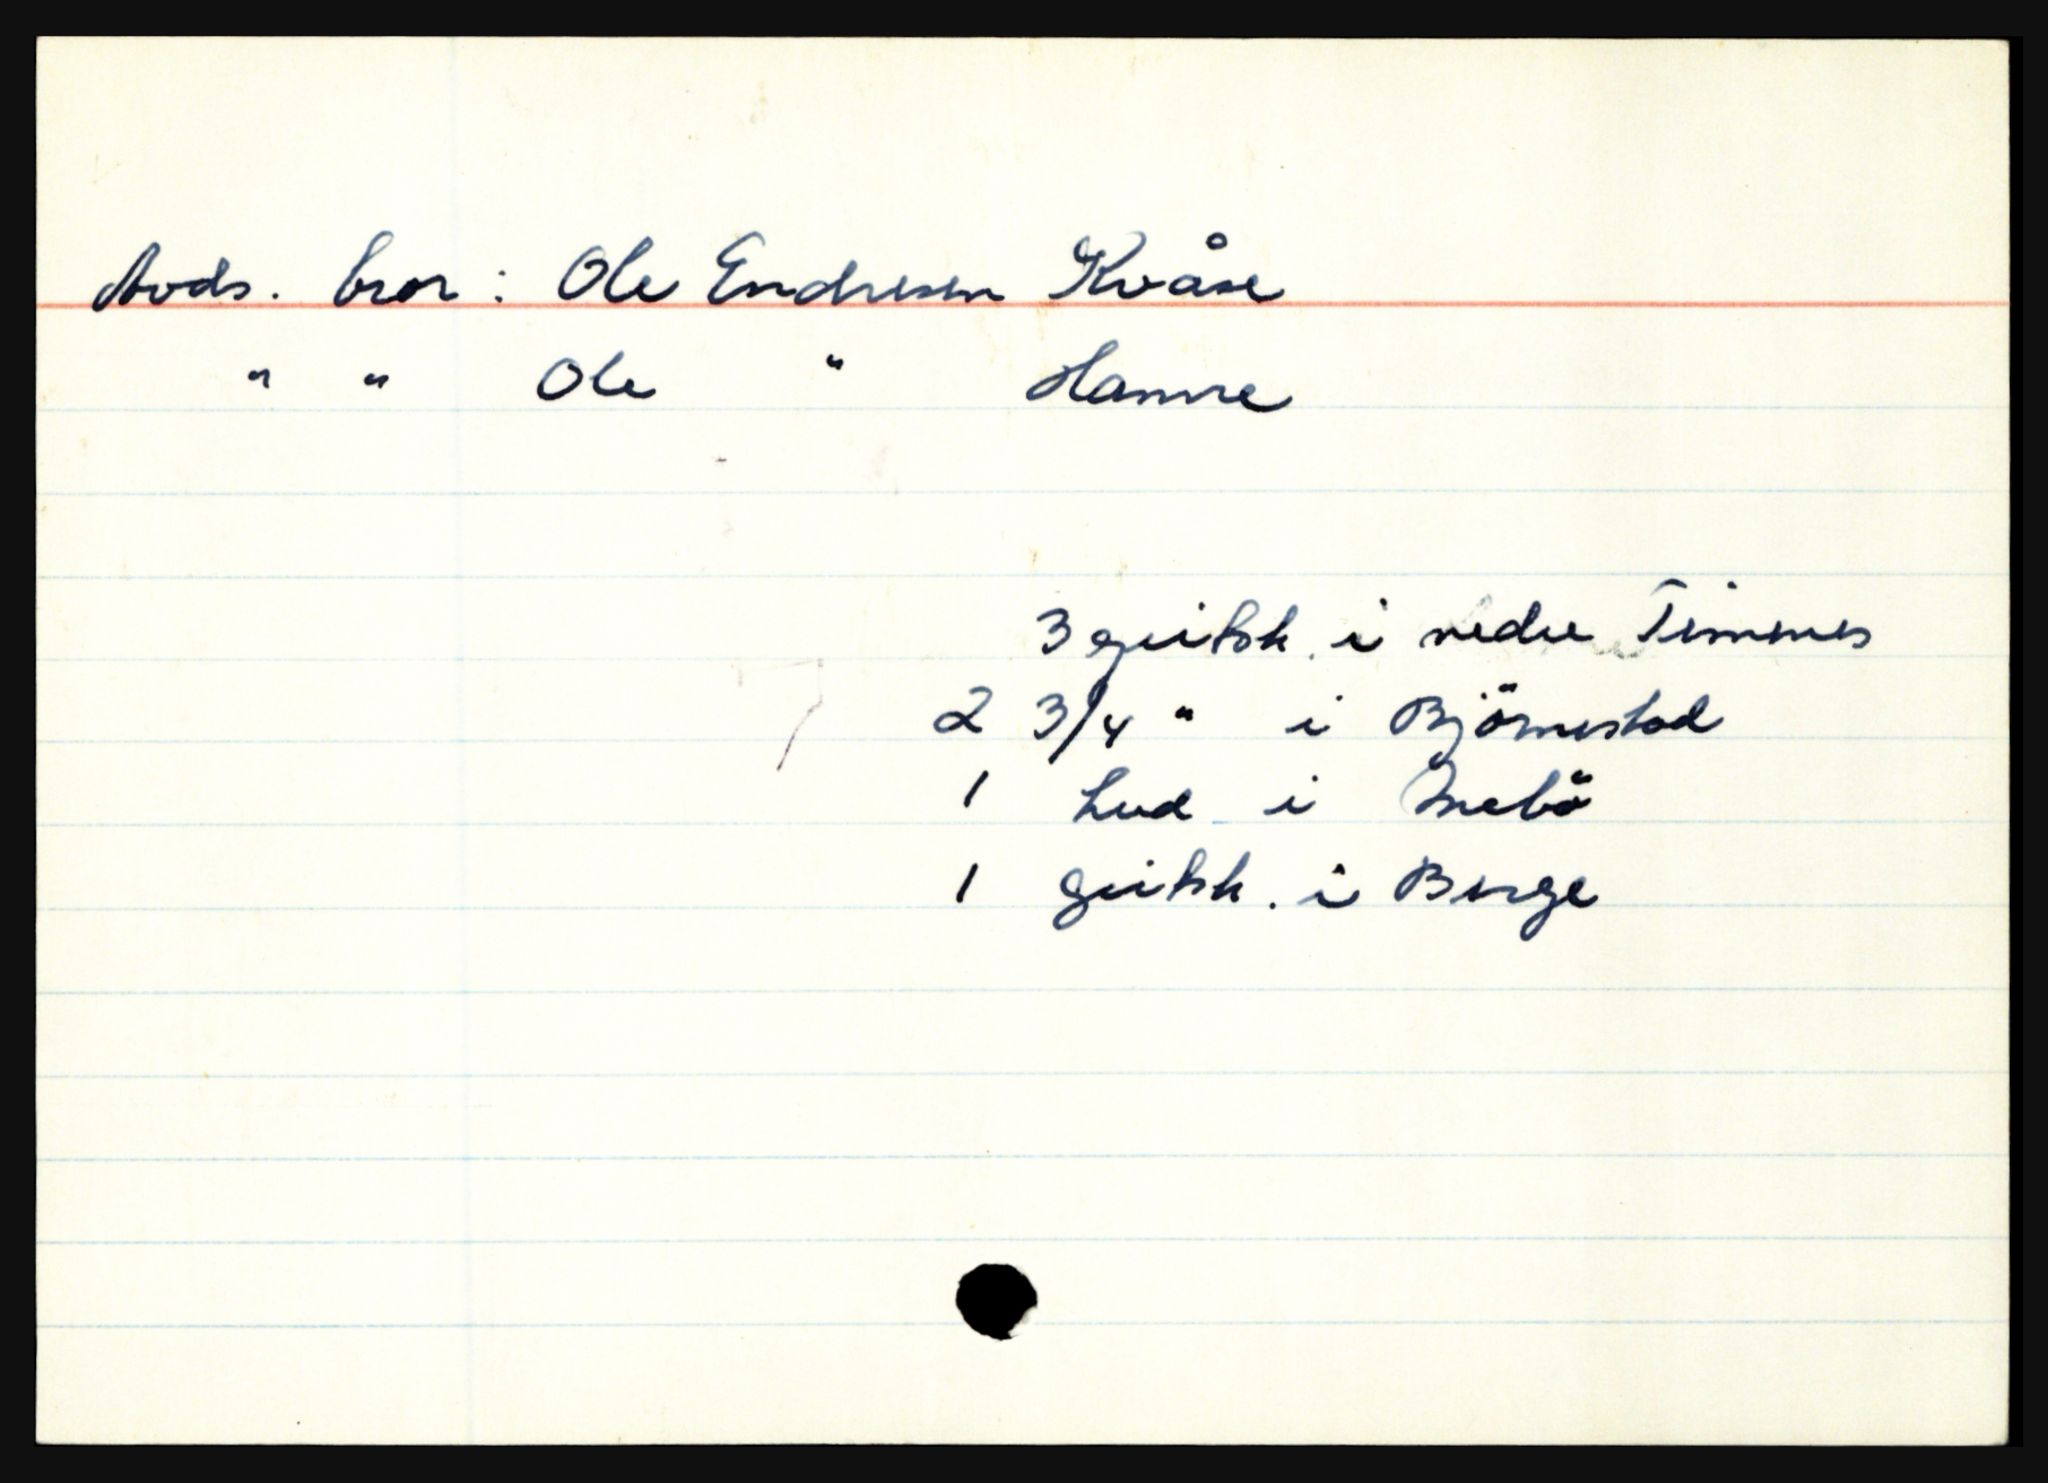 Avds. bror: Ole Endresen Kvåse
" " Ole " Hamre
3 geitsk. i nedre Timmes
2 3/4 " i Björnestad
1 hud i Mebö
1 geitsk. i Berge